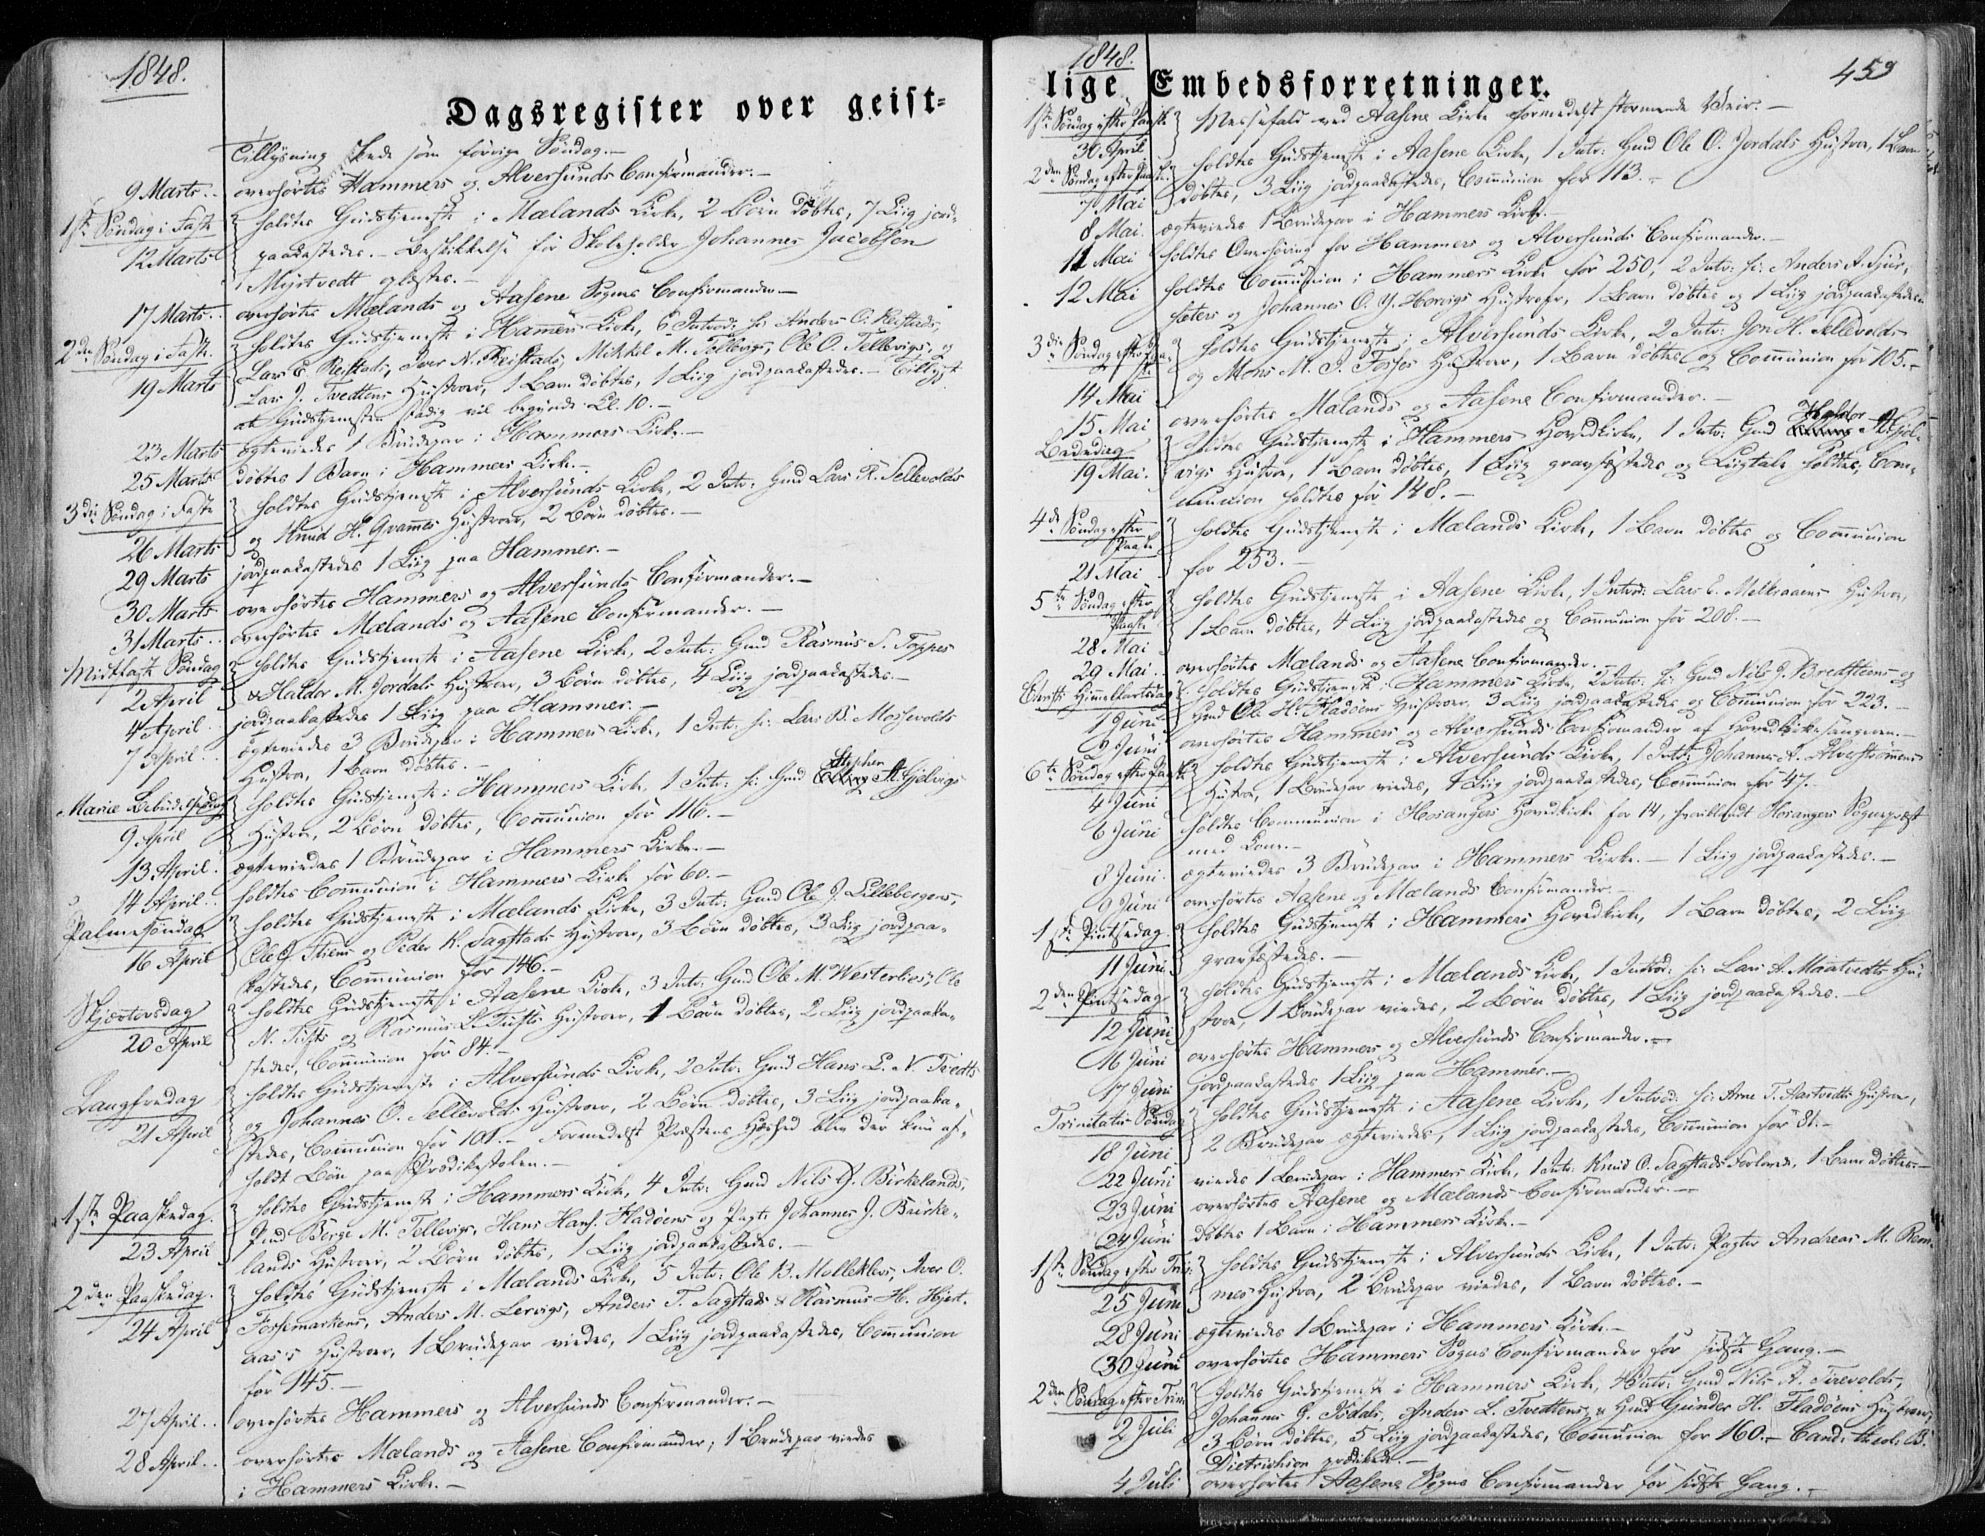 1848.
Dagsregister over geist-
Tillysning skede som forrige Søndag.-
9 Marts.. overhørtes Hammers og Alversunds Confirmander.-
1ste Søndag i Faste holdtes Gudstjeneste i Mælands Kirke, 2 Børn døbtes, 7 Liig jord-
12 Marts paakastedes. - Beskikkelse for Skoleholder Johannes Jacobsen
Myrtvedt oplæstes.-
17 Marts.. overhørtes Mælands og Aasene Sogns Confirmander.-
2den Søndag i Faste holdtes Gudstjeneste i Hamers Kirke, 6 Introd: fr: Anders O. Reistads,
Lars E. Reistads, Iver N. Reistads, Mikkel M. Tellevigs, Ole O. Tellevigs, og
19 Marts Lars J. Tvedtens Hustruer, 1 Barn døbtes, 1 Liig jordpaakastedes. - Tillyst
at Gudstjenesten stadig vil begynde Kl. 10.-
23 Marts ægteviedes 1 Brudepar i Hammers Kirke.-
25 Marts døbtes 1 Barn i Hammers Kirke.-
3die Søndag i Faste holdtes Gudstjeneste i Alversunds Kirke, 2 Intr: Gmd Lars R. Tellevolds
26 Marts og Knud H. Qvammes Hustruer, 2 Børn døbtes.-
29 Marts jordpaakastedes 1 Liig paa Hammer.-
30 Marts overhørtes Hammers og Alversunds Confirmander.-
31 Marts.. overhørtes Mælands og Aasene Confirmander.-
Midfaste Søndag holdtes Gudstjeneste i Aasene Kirke, 2 Intr: Gmd Rasmus S. Toppes
2 April & Haldor M. Jordals Hustruer, 3 Børn døbtes, 4 Liig jordpaakastedes.-
4 April.. jordpaakastedes 1 Liig paa Hammer.-
7 April.. ægteviedes 3 Brudepar i Hammers Kirke, 1 Intr: fr: Lars B. Mosevolds
Hustru, 1 Barn døbtes.-
Stephen
Mariæ Bebudelsesdag holdtes Gudstjeneste i Hammers Kirke, 1 Intr: fr: Gmd A. Hjelvigs
9 April Hustru, 2 Børn døbtes, Communion for 116.-
13 April. ægteviedes 1 Brudepar i Hammers Kirke.-
14 April.. holdtes Communion i Hammers Kirke for 60.-
Palmesøndag holdtes Gudstjeneste i Mælands Kirke, 3 Intr: Gmd Ole J. Lillebergens,
16 April Ole J. Stiens og Peder K. Sagstads Hustruer, 3 Børn døbtes, 3 Liig jordpaa-
kastedes, Communion for 146.-
Skjærtorsdag holdtes Gudstjeneste i Aasene Kirke, 3 Intr: Gmd Ole M. Westerbøs, Ole
20 April N. Tufts og Rasmus L. Tufts Hustruer, 1 Børn døbtes, 2 Liig jordpaaka-
stedes, Communion for 84.-
Langfredag holdtes Gudstjeneste i Alversunds Kirke, 2 Intr: Gmd Hans L. N. Tvedts
21 April og Johannes O. Tellevolds Hustruer, 2 Børn døbtes, 3 Liig jordpaaka-
stedes, Communion for 101.- Formedelst Præstens Hæshed blev der kun af-
holdt Bøn paa Prædikestolen.-
1ste Paaskedag. holdtes Gudstjeneste i Hammers Kirke, 4 Intr: Gmd Nils D. Birkelands,
Jnd Børge M. Tellevigs, Hans Hans. Fladøens og Pagt. Johannes J. Buirke-
23 April lands Hustruer, 2 Børn døbtes, 1 Liig jordpaakastedes.-
2den Paaskedag. holdtes Gudstjeneste i Mælands Kirke, 5 Intr: Ole B. Molleklevs, Iver O.
24 April Fossemarkens, Anders M. Lervigs, Anders T. Sagstads & Rasmus H. Hjort-
aas's Hustruer, 1 Brudepar viedes, 1 Liig jordpaakastedes, Communion
for 145.-
27 April.. overhørtes Hammers og Alversunds Confirmander.-
28 April.. overhørtes Mælands og Aasene Confirmander; 1 Brudepar viedes
i Hammers Kirke.-
1848.
459
lige Embedsforretninger.
1ste Søndag efter Paaske Messefald ved Aasene Kirke formedelst stormende Veir.-
30 April
2den Søndag efter Paaske holdtes Gudstjeneste i Aasene Kirke, 1 Intr: Gmd Ole O. Jordals Hustru, 1 Barn
7 Mai døbtes, 3 Liig jordpaakastedes, Communion for 113.-
8 Mai. ægteviedes 1 Brudepar i Hammers Kirke.-
11 Mai holdtes Overhøring for Hammers og Alversunds Confirmander.-
12 Mai holdtes Communion i Hammers Kirke for 250, 2 Intr: fr: Anders A. Sjur-
sæters og Johannes O. Y. Horvigs Hustruer, 1 Barn døbtes og 1 Liig jordpaakastedes.
3die Søndag efter Paaske holdtes Gudstjeneste i Alversunds Kirke, 2 Intr: Jon H. Tellevolds
14 Mai og Mons M. I. Fosses Hustruer, 1 Barn døbtes og Communion for 105.-
15 Mai overhørtes Mælands og Aasene Confirmander.-
Haldor
Bededag holdtes Gudstjeneste i Hammers Hovedkirke, 1 Intr: Gmd A. Hjel-
19 Mai. vigs Hustru, 1 Barn døbtes, 1 Liig gravfæstedes og Liigtale holdtes, Com-
munion holdtes for 148.-
4de Søndag efter Paaske holdtes Gudstjeneste i Mælands Kirke, 1 Barn døbtes og Communion
21 Mai for 253.-
5te Søndag efter Paaske holdtes Gudstjeneste i Aasene Kirke, 1 Introd: Lars C. Melkraaens Hustru,
28 Mai 1 Barn døbtes, 4 Liig jordpaakastedes og Communion for 208.-
29 Mai. overhørtes Mælands og Aasene Confirmander.-
Christi Himmelfartsdag holdtes Gudstjeneste i Hammers Kirke, 2 Intr: fr: Gmd Nils J. Bredsteens og
1 Juni Gmd Ole H. Fladøens Hustruer, 3 Liig jordpaakastedes og Communion for 223.-
2 Juni overhørtes Hammers og Alversunds Confirmander af Hovedkirkesangeren.-
6te Søndag efter Paaske holdtes Gudstjeneste i Alversunds Kirke, 1 Intr: Johannes A. Alverstrømens
4 Juni Hustru, 1 Brudepar viedes, 4 Liig jordpaakastedes, Communion for 47.-
6 Juni holdtes Communion i Hosangers Hovedkirke for 14, hvoriblandt Hosangers Sognepræst
med Kone.-
8 Juni. ægteviedes 3 Brudepar i Hammers Kirke.- 1 Liig jordpaakastedes.-
9 Juni overhørtes Aasene og Mælands Confirmander.-
1ste Pintsedag. holdtes Gudstjeneste i Hammers Hovedkirke, 1 Barn døbtes, 2 Liig
11 Juni gravfæstedes.-
2den Pintsedag holdtes Gudstjeneste i Mælands Kirke, 1 Introd: fr: Lars A. Maatvedts Hu-
12 Juni stru, 1 Brudepar viedes, 2 Børn døbtes, 1 Liig jordpaakastedes.-
16 Juni overhørtes Hammers og Alversunds Confirmander.-
17 Juni jordpaakastedes 1 Liig paa Hammer.-
Trinitatis Søndag holdtes Gudstjeneste i Aasene Kirke, 1 Introd: fr: Arne T. Hartvedts Hustru,
18 Juni 2 Brudepar ægteviedes, 1 Liig jordpaakastedes, Communion for 81.-
22 Juni viedes 1 Brudepar i Hammers Kirke, 1 Intr: Knud O. Sagstads Forlovede, 1 Barn døbtes.-
23 Juni overhørtes Aasene og Mælands Confirmander.-
24 Juni døbtes 1 Barn i Hammers Kirke.-
1ste Søndag efter Trin: holdtes Gudstjeneste i Alversunds Kirke, 1 Intr: Pagter Andreas M. Rem-
25 Juni mes Hustru, 2 Brudepar viedes, 1 Barn døbtes.-
28 Juni ægteviedes 1 Brudepar i Hammers Kirke.-
30 Juni overhørtes Hammers Sogns Confirmander for sidste Gang.-
2den Søndag efter Trin: holdtes Gudstjeneste i Hammers Kirke, 4 Intr: Gmd Nils A. Tirevolds,
Johannes G. Isdals, Anders L. Tvedtens, & Hmd Gunder H. Fladøens Hustruer,
2 Juli 3 Børn døbtes, 5 Liig jordpaakastedes, Communion for 160.- Cand: theol: B.
Dietrichson prædikede.-
4 Juli overhørtes Aasene Sogns Confirmander for sidste Gang.-